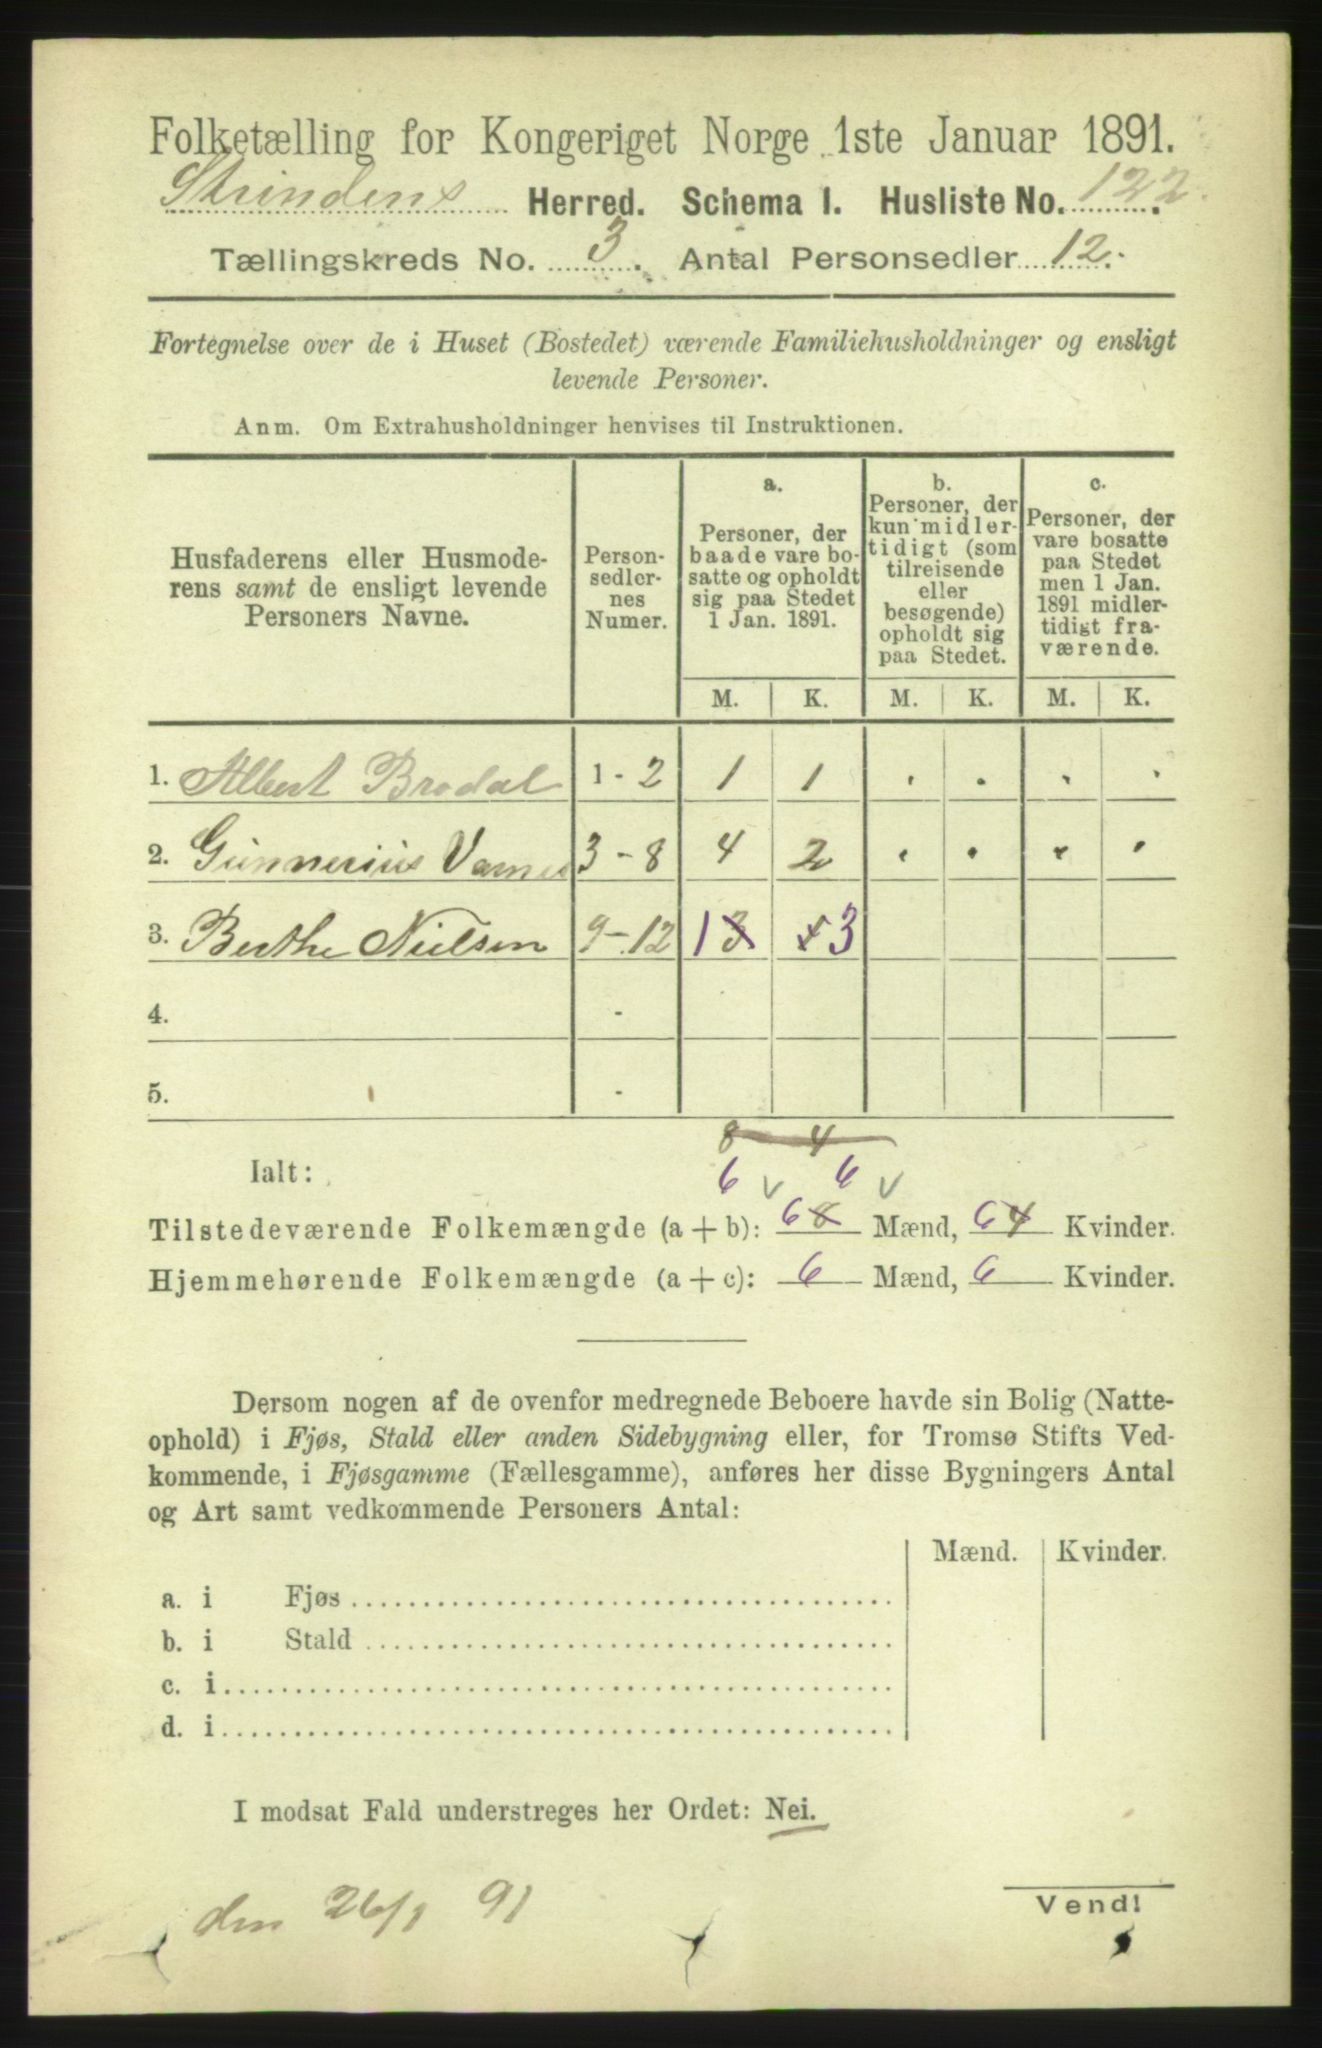 Folketælling for Kongeriget Norge 1ste Januar 1891.
Strindens Herred. Schema I. Husliste No. 122.
Tællingskreds No. 3. Antal Personsedler 12.
Fortegnelse over de i Huset (Bostedet) værende Familiehusholdninger og ensligt
levende Personer.
Anm. Om Extrahusholdninger henvises til Instruktionen.
Husfaderens eller Husmode-
rens samt de ensligt levende
Personers Navne.
Person-
sedler-
nes
Numer.
a.
Personer, der
baade vare bo-
satte og opholdt
sig paa Stedet
1 Jan. 1891.
b.
Personer, der
kun midler-
tidigt (som
tilreisende
eller
besøgende)
opholdt sig
paa Stedet.
c.
Personer, der
vare bosatte
paa Stedet
men 1 Jan.
1891 midler-
tidigt fra-
værende.
M. K. M. K. M. K.
1. Albert Brodal 1 - 2 1 1 . . . .
2. Gunnerius 3 - 8 4 2 . . . .
3. Berthe Nielsen 9 - 12 1 3 3
4. -
5. -
8 4
Ialt: 6 v 6 v
Tilstedeværende Folkemængde (a + b): 6 8 Mænd, 6 4 Kvinder.
Hjemmehørende Folkemængde (a + c): 6 Mænd, 6 Kvinder.
Dersom nogen af de ovenfor medregnede Beboere havde sin Bolig (Natte-
ophold) i Fjøs, Stald eller anden Sidebygning eller, for Tromsø Stifts Ved-
kommende, i Fjøsgamme (Fællesgamme), anføres her disse Bygningers Antal
og Art samt vedkommende Personers Antal:
Mænd. Kvinder.
a. i Fjøs
b. i Stald
c. i
d. i
I modsat Fald understreges her Ordet: Nei.
den 26/1 91
Vend!